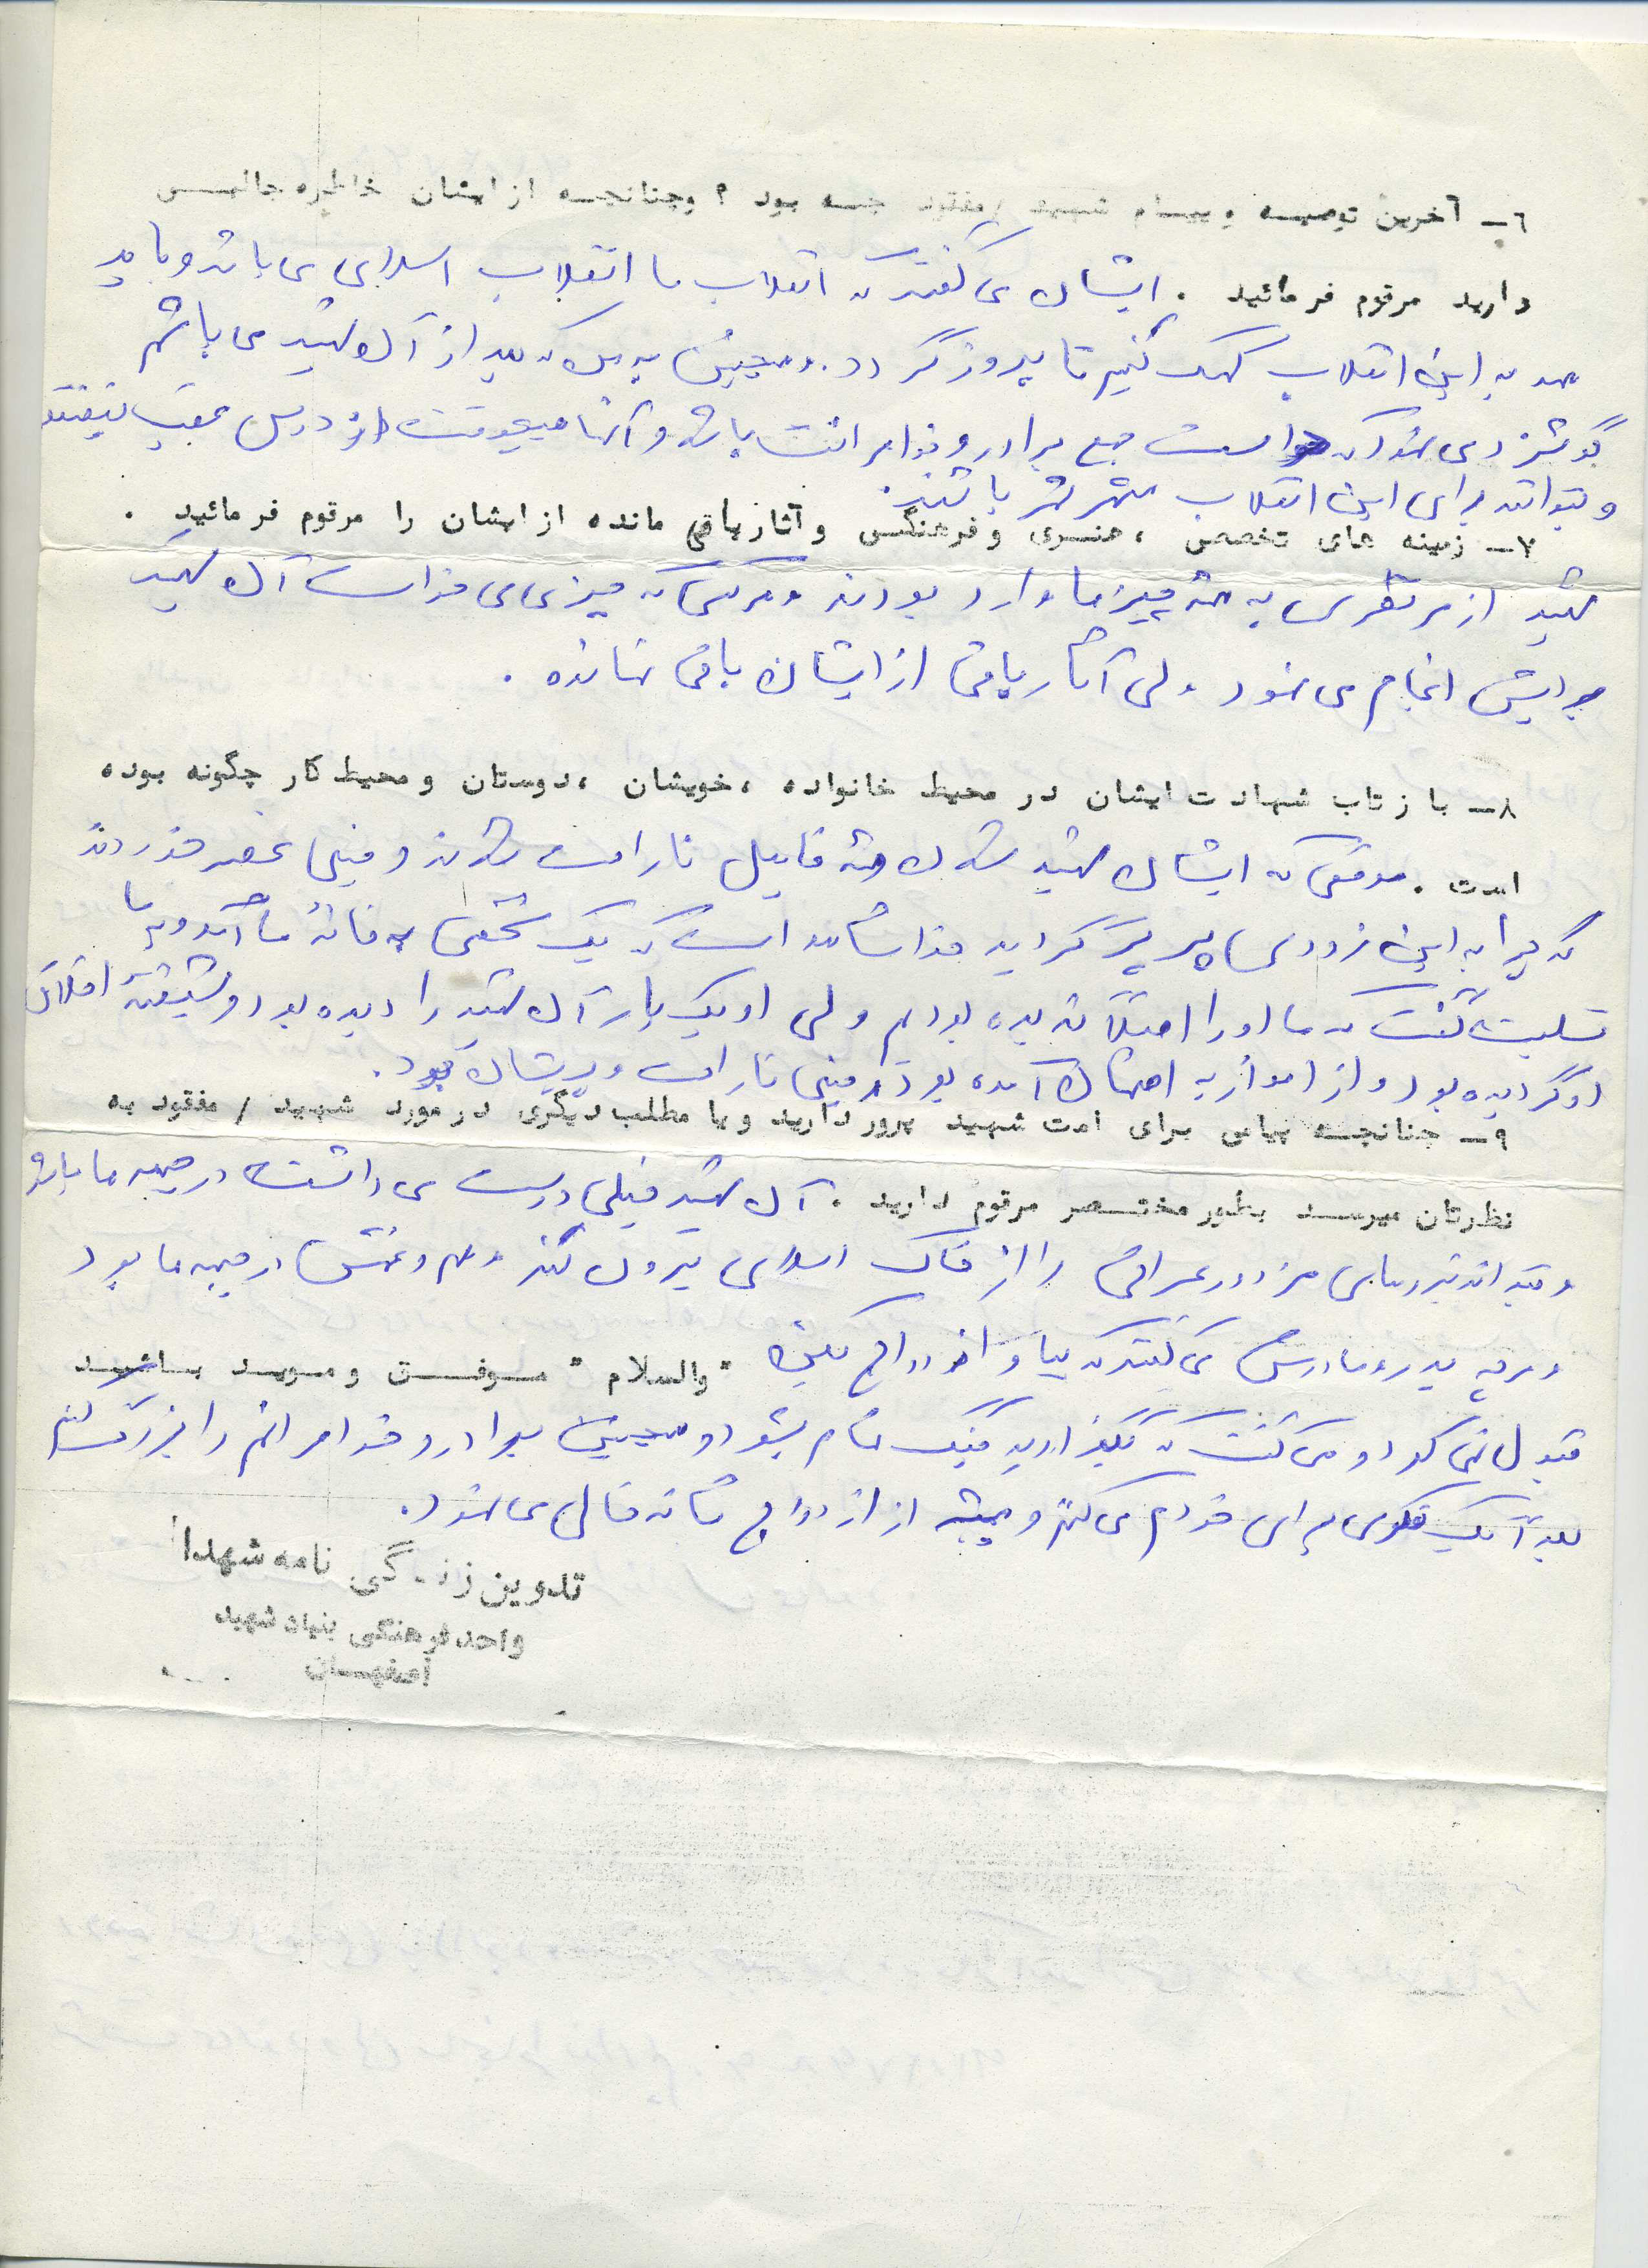 ٦ــ آخرین توصیــه و پیــام شهیــد / مفقود چــه بود ؟ وچنانچــه از ایشان خاطره جالبــی
دارید مرقوم فرمائید . ایشان می گفتند که انقلاب ما انقلاب اسلامی می باشد و باید
همه به این انقلاب کمک کنیم تا پیروز گردد . و همچنین به من که بعد از آن شهید می باشم
گوشزد می نمود که حواست جمع برادر و خواهرانت باشد و آنها هیچوقت از درس عقب نیفتند
و بتوانند برای این انقلاب مثمر ثمر باشند.
٧ــ زمینه های تخصصی ، هنــری و فرهنگــی و آثار باقی مانده از ایشان را مرقوم فرمائید .
شهید از هر نظری به همه چیزها وارد بودند و هر کسی که چیزی می خواست آن شهید
برایش انجام می نمود ولی آثار باقی از ایشان باقی نمانده .
٨ــ باز تاب شهادت ایشان در محیط خانواده ، خویشان ، دوستان و محیط کار چگونه بوده
است . موقعی که ایشان شهید شدن همه فامیل ناراحت شدند و خیلی غصه خوردند
که چرا به این زودی پرپر گردید خدا شاهد است که یک شخصی به خانه ما آمد و بما
تسلیت گفت که ما او را اصلاً ندیده بودیم ولی او یک بار آن شهید را دیده بود و شیفته اخلاق
او گردیده بود و از اهواز به اصفهان آمده بود و خیلی ناراحت و پریشان بود.
٩ــ چنانچــه پیامی برای امت شهید پرور دارید و یا مطلب دیگری در مورد شهید / مفقود به
نظرتان میرســد بطور مختــصر مرقوم دارید . آن شهید خیلی دوست می داشت در جبهه ها باشد
و بتواند نیروهای مزدور عراقی را از خاک اسلامی بیرون کند و هم و غمش در جبهه ها بود
و هر چه پدر و مادرش می گفتند که بیا و ازدواج بکن " والسلام " مــوفــق و مویــد باشیــد
قبول نمی کرد و می گفت که بگذارید جنگ تمام بشود و همچنین برادر و خواهرانم را بزرگ کنم
بعد آنگه فکری برای خودم می کنم و همیشه از ازدواج شانه خالی می نمود.
تدوین زنـدگی نامه شهدا
واحد فرهنگی بنیاد شهید
اصفهــان